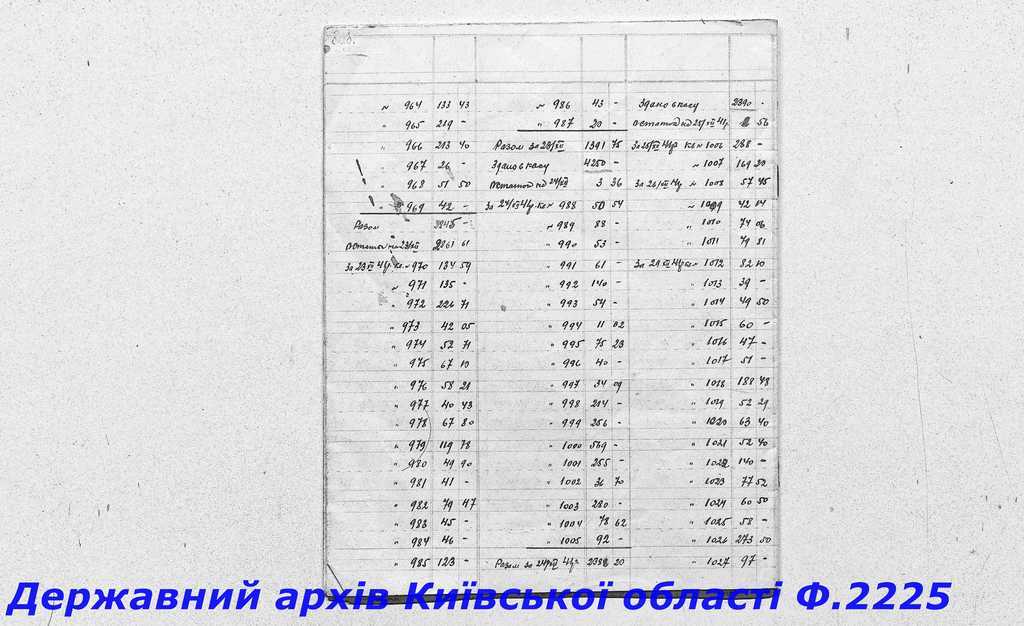 № 964 133 43
" 965 219 -
" 966 213 40
" 967 26 -
" 968 51 50
" 969 42 -
Разом 3845 -
61
За 23/XII 41р. кв. № 970 134 59
№ 971 135 -
" 972 226 71
" 973 42 05
" 974 52 71
" 975 67 10
" 976 58 21
" 977 40 43
" 978 67 80
" 979 119 78
" 980 49 90
" 981 41 -
" 982 79 47
" 983 45 -
" 984 46 -
" 985 123 -
№ 986 43 -
" 987 20 -
Разом за 23/XII 1391 75
Здано в касу 4250 -
24/XII 3 36
За 24/XII 41р. кв. № 988 50 54
№ 989 88 -
" 990 53 -
" 991 61 -
" 992 140 -
" 993 54 -
" 994 11 02
" 995 75 23
" 996 40 -
" 997 34 09
" 998 214 -
" 999 256 -
" 1000 569 -
" 1001 255 -
" 1002 36 70
" 1003 280 -
" 1004 78 62
" 1005 92 -
Разом за 24/XII 41р. 2388 20
Здано в касу 2390 -
25/XII 41р. 56
За 25/XII 41р. кв. № 1006 288 -
№ 1007 169 20
За 26/XII 41р. № 1008 57 45
№ 1009 42 14
" 1010 74 06
" 1011 79 81
За 29/XII 41р. кв. № 1012 82 10
" 1013 39 -
" 1014 49 50
" 1015 60 -
" 1016 47 -
" 1017 51 -
" 1018 188 48
" 1019 52 29
" 1020 63 40
" 1021 52 40
" 1022 140 -
" 1023 77 52
" 1024 60 50
" 1025 58 -
" 1026 273 50
" 1027 97 -
Державний архів Київської області Ф.2225